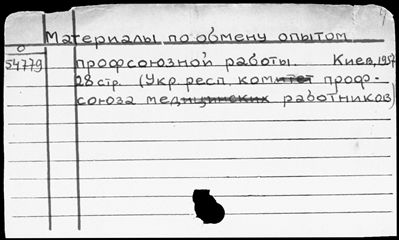 Материалы по обмену опытом
О
54779
профсоюзной работы. Киев, 1957
28 стр. (Укр. респ. комитет проф-
союза медицинских работников)